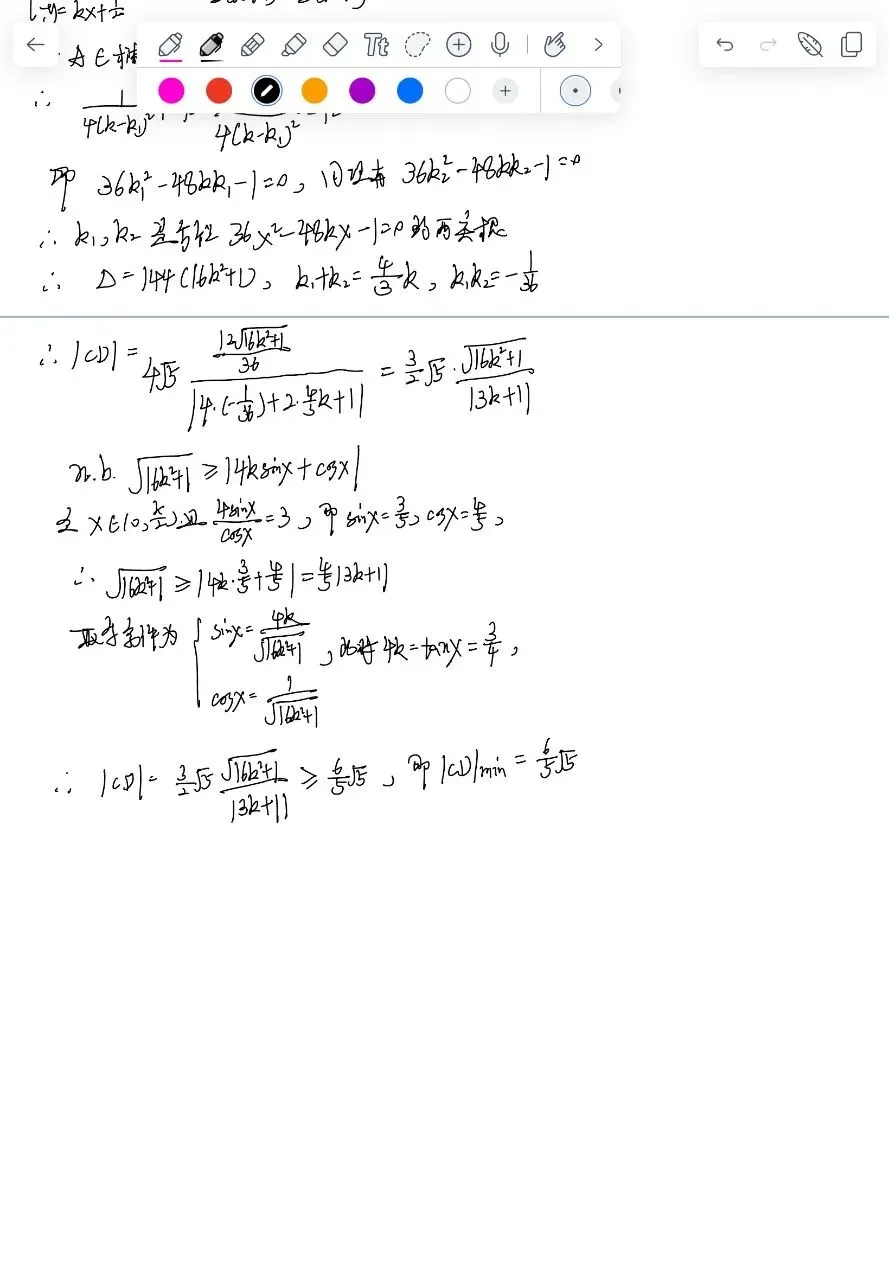 l:y=kx+1/2
∵A E
Tt
∴ 1/4(k-k₁)² 4(k-k₁)²
即 36k₁²-48kk₁-1=0, 同理有 36k₂²-48kk₂-1=0
∴ k₁,k₂ 是方程 36x²-48kx-1=0 的两实根
∴ Δ=144(16k²+1), k₁+k₂=4/3k, k₁k₂=-1/36
∴ |CD|=4√5 (12√(16k²+1)/36)/|4·(-1/36)+2·4/3k+1| = 3/2√5·√(16k²+1)/|3k+1|
n.b. √(16k²+1) ≥ |4ksinx+cosx|
令 x∈(0,π/2)且 4sinx/cosx=3, 即 sinx=3/5, cosx=4/5,
∴ √(16k²+1) ≥ |4k·3/5+4/5| = 4/5|3k+1|
取等条件为 { sinx=4k/√(16k²+1) , 此时 4k=tanx=3/4,
cosx=1/√(16k²+1)
∴ |CD|=3/2√5 √(16k²+1)/|3k+1| ≥ 6/5√5, 即 |CD|min=6/5√5